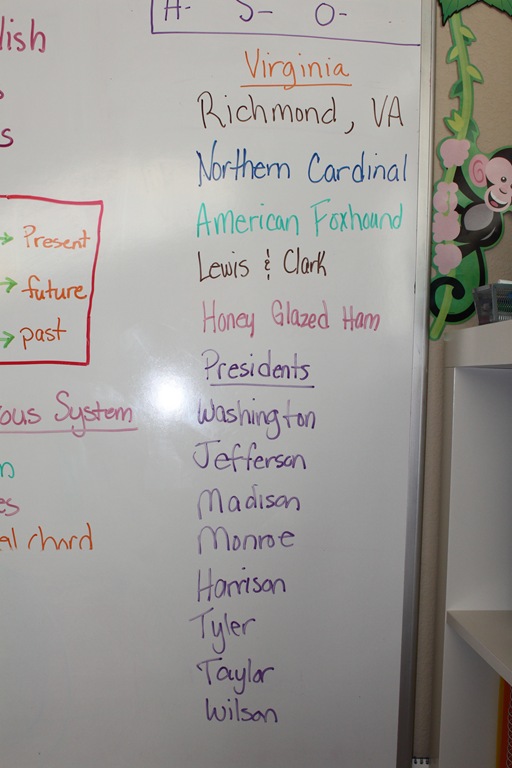 H- S- O-
lish
s
Present
future
past
ous System
n
es
al chord
Virginia
Richmond, VA
Northern Cardinal
American Foxhound
Lewis & Clark
Honey Glazed Ham
Presidents
Washington
Jefferson
Madison
Monroe
Harrison
Tyler
Taylor
Wilson